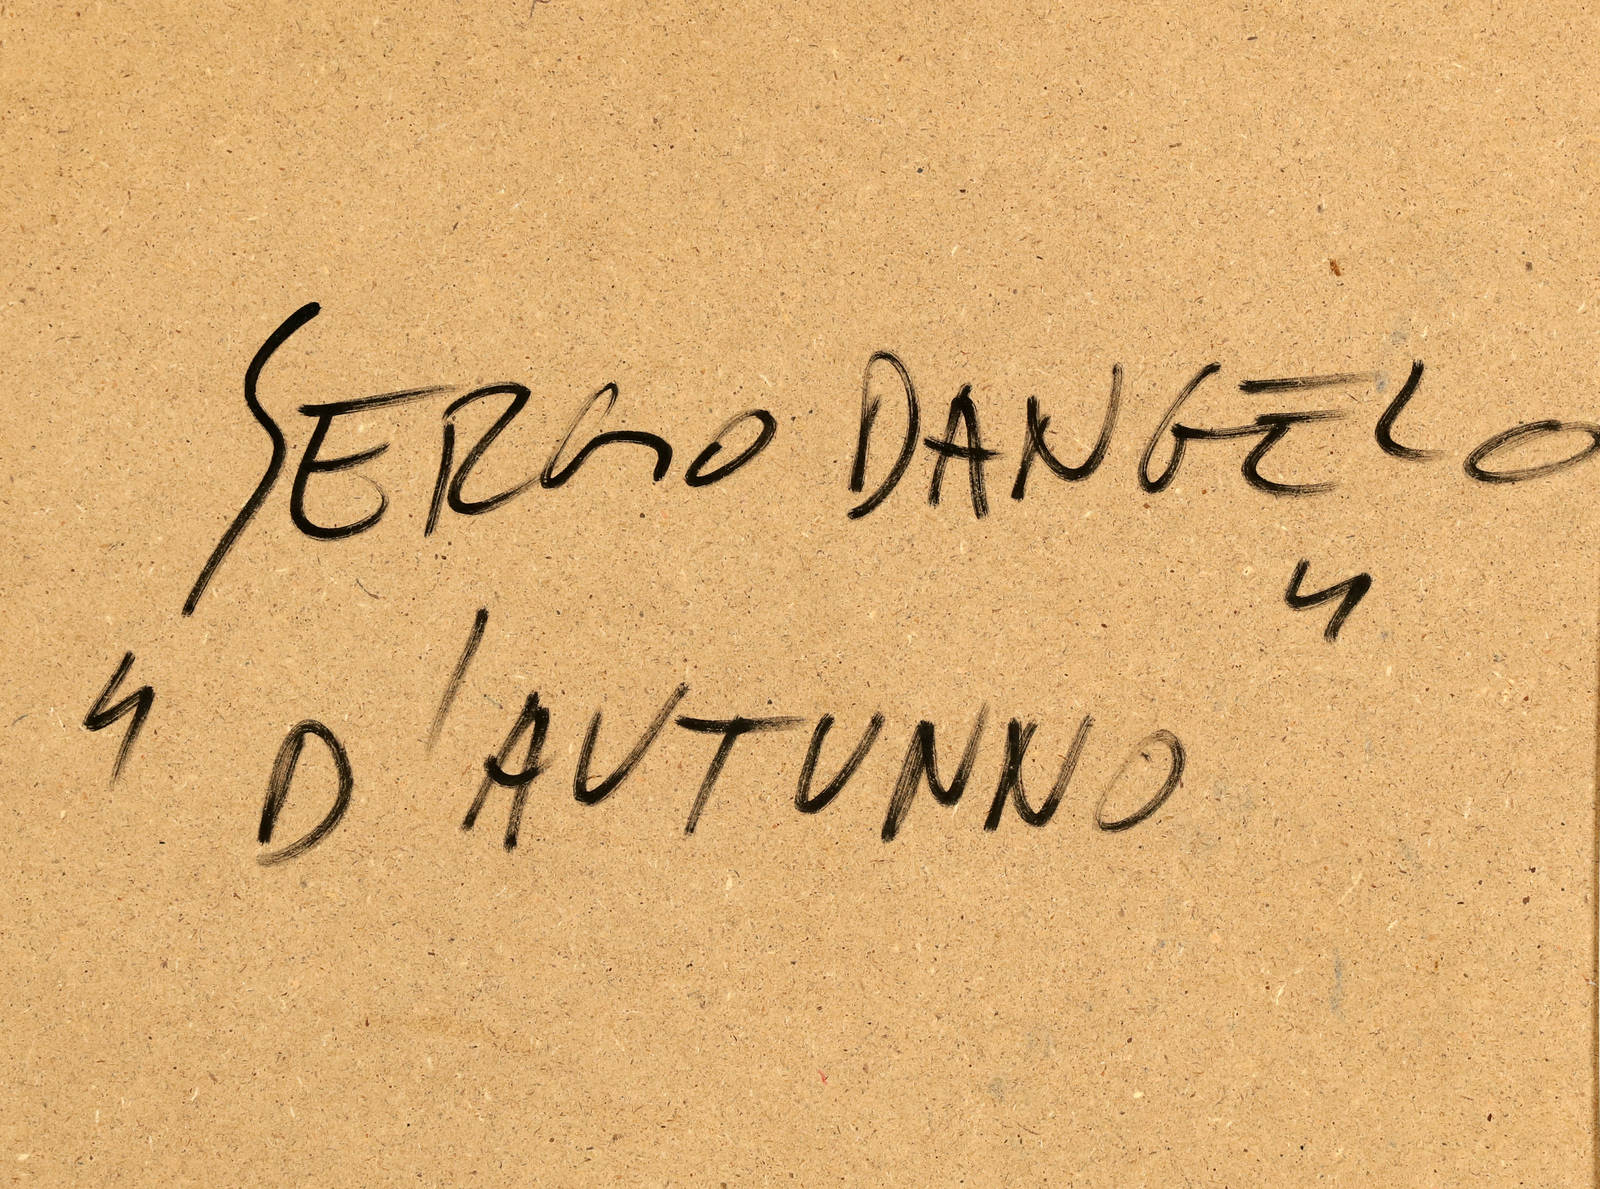 SERGIO DANGELO
"D'AUTUNNO"